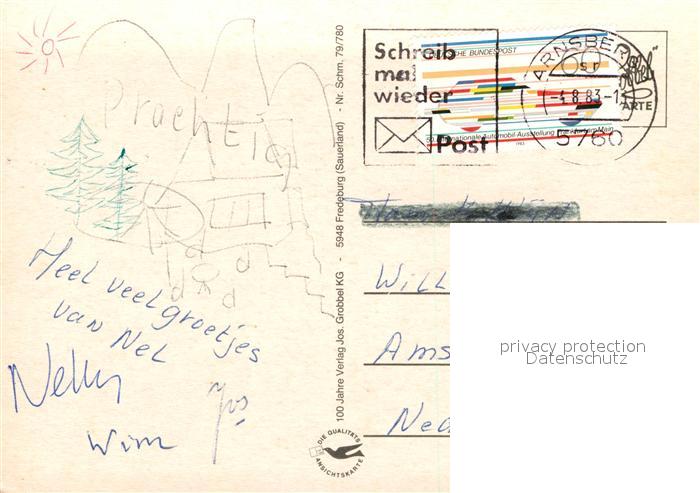 Prachtig
Heel veel groetjes
van Nel
Nelly
Jos
Wim
100 Jahre Verlag Jos. Grobbel KG - 5948 Fredeburg (Sauerland) - Nr. Schm. 79/780
DIE QUALITÄTS
ANSICHTSKARTE
Schreib
mal
wieder
Post
DEUTSCHE BUNDESPOST
50. Internationale Automobil-Ausstellung Frankfurt am Main
1983
ARNSBERG
-4.8.83-1
5760
ARTE
Will
Ams
Ned
privacy protection
Datenschutz